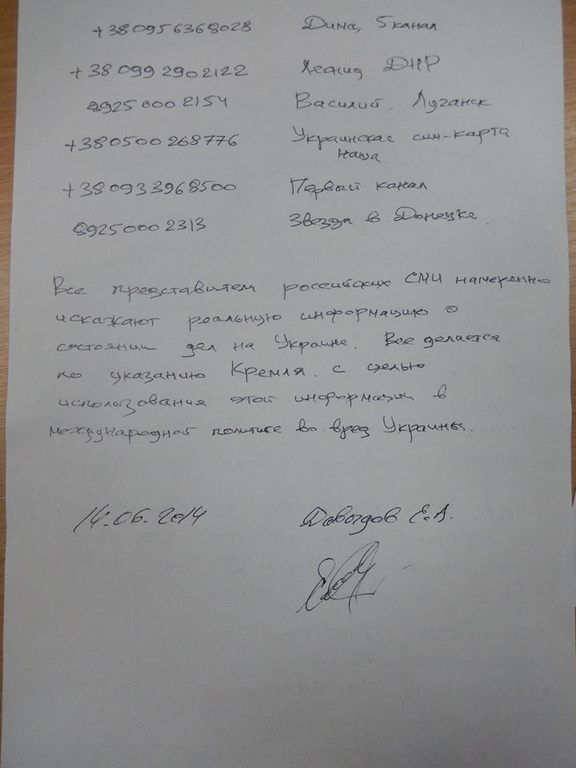 +380956368028 Дима, 5 канал.
+380992902122 Леонид ДНР
89250002154 Василий, Луганск
+380500268776 Украинская сим-карта
наша
+380933968500 Первый канал
89250002313 Звезда в Донецке.
Все представители российских СМИ намеренно
искажают реальную информацию о
состоянии дел на Украине. Все делается
по указанию Кремля. с целью
использования этой информации в
международной политике во вред Украины.
14.06.2014 Давыдов Е.А.